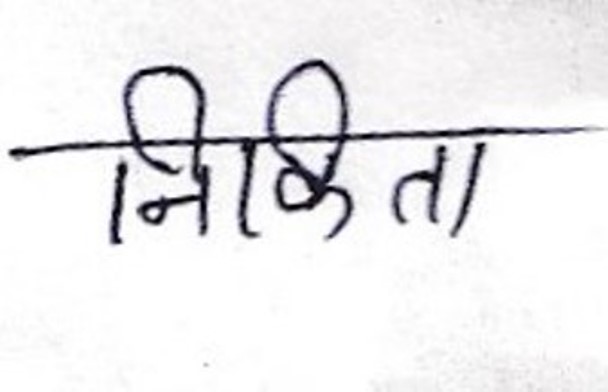 निकिता